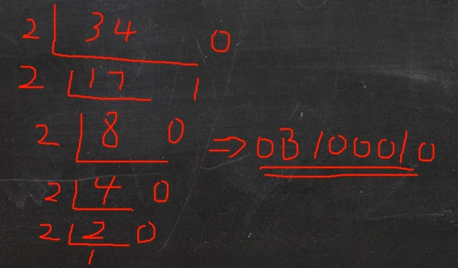 2 34 0
2 17 1
2 8 0 ⇒ 0B100010
2 4 0
2 2 0
1